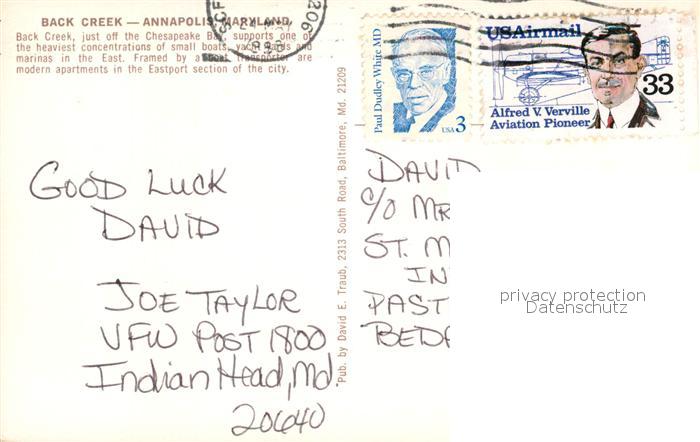 BACK CREEK — ANNAPOLIS, MARYLAND
Back Creek, just off the Chesapeake Bay, supports one of
the heaviest concentrations of small boats, yacht yards and
marinas in the East. Framed by a boat transporter are
modern apartments in the Eastport section of the city.
GOOD LUCK
DAVID
JOE TAYLOR
VFW POST 1800
Indian Head, Md.
20640
Pub. by David E. Traub, 2313 South Road, Baltimore, Md. 21209
206
Paul Dudley White MD
USA 3
USAirmail
33
Alfred V. Verville
Aviation Pioneer
DAVID
C/O MR
ST. M
IN
PAST
BEDF
privacy protection
Datenschutz